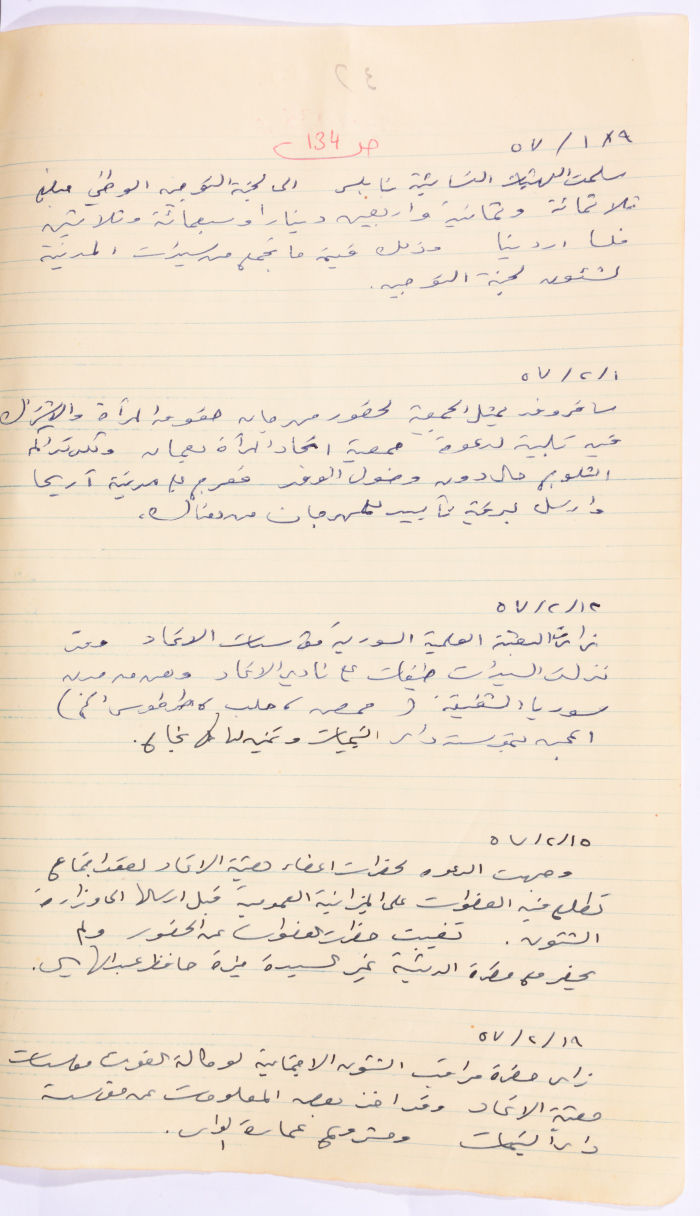 ٢٤
ص 134
٥٧/١/٢٩
سلمت اللجنة النسائية بنابلس الى لجنة التوجيه الوطني مبلغ
ثلاثمائة وثمانية واربعين دينارا وسبعمائة وثلاثين
فلسا اردنيا وذلك قيمة ما تجمع من سيدات المدينة
لشئون لجنة التوجيه.
٥٧/٢/١
سافر وفد يمثل الجمعية لحضور مهرجان حقوق المرأة والاشتراك
فيه تلبية لدعوة جمعية اتحاد المرأة بعمان ولكن تراكم
الثلوج حال دون وصول الوفد فعرج على مدينة أريحا
وارسل برقية تأييد للمهرجان من هناك.
٥٧/٢/١٢
زارت البعثة العلمية السورية مؤسسات الاتحاد وقد
نزلت السيدات ضيفات على نادي الاتحاد وهن من مدن
سوريا الشقيقة (حمص، حلب، طرطوس الخ)
اعجبن بمؤسسة دار اليتيمات وتمنين لها كل نجاح.
٥٧/٢/١٥
وجهت الدعوه لحضرات اعضاء هيئة الاتحاد لعقد اجتماع
تطلع فيه العضوات على الميزانية العمومية قبل ارسالها الى وزارة
الشئون. تغيبت حضرات العضوات عن الحضور ولم
يحضر مع حضرة الرئيسة غير السيدة فيزة حافظ عبد الهادي.
٥٧/٢/١٩
زار حضرة مراقب الشئون الاجتماعية لوكالة الغوث مؤسسات
هيئة الاتحاد وقد اخذ بعض المعلومات عن مؤسسة
دار اليتيمات ومشروع عمارة الدار.